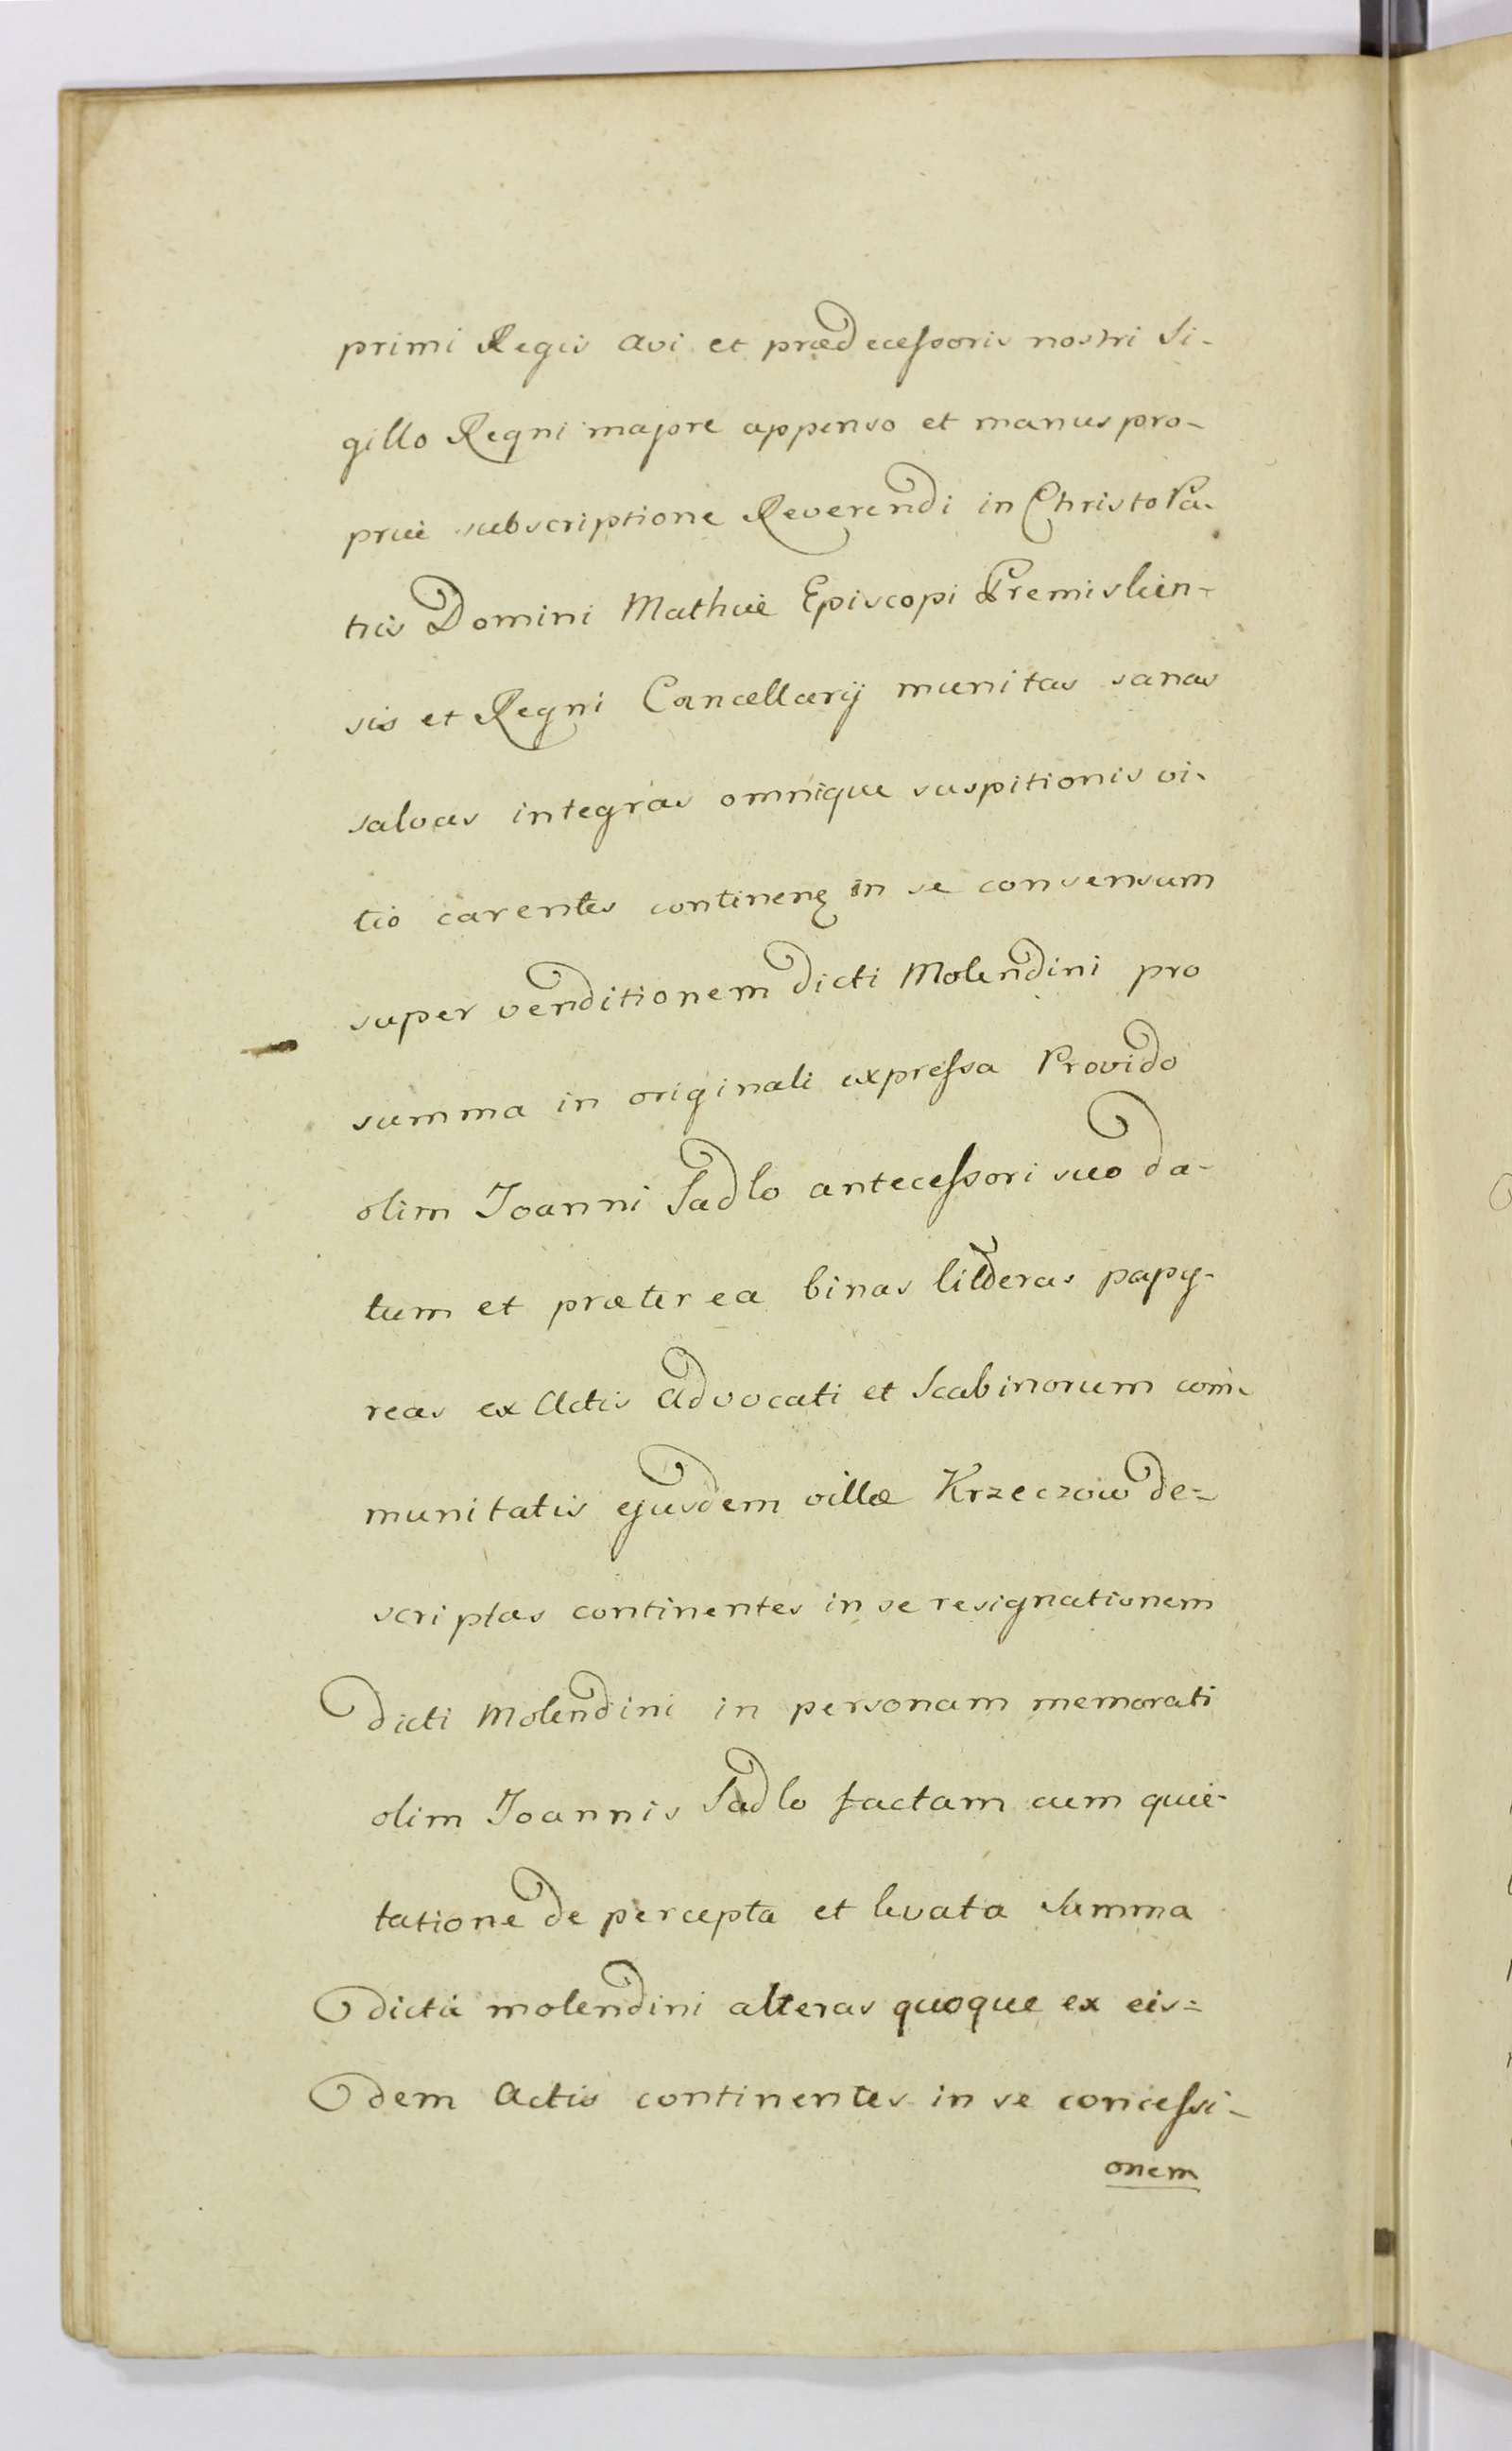 primi Regis Avi et prædecessoris nostri Si-
gillo Regni majore appenso et manus pro-
priæ subscriptione Reverendi in Christo Pa-
tris Domini Mathiæ Episcopi Premislien-
sis et Regni Cancellarij munitas sanas
salvas integras omnique suspitionis vi-
tio carentes continen in se consensum
super venditionem dicti Molendini pro
summa in originali expressa Provido
olim Joanni Sadlo antecessori suo da-
tum et præterea binas litteras papy-
reas ex Actis Advocati et Scabinorum com-
munitatis ejusdem villæ Krzeczow de=
scriptas continentes in se resignationem
dicti Molendini in personam memorati
olim Joannis Sadlo factam cum quie-
tatione de percepta et levata Summa
dicti molendini alteras quoque ex eis=
dem Actis continentes in se concessi-
onem